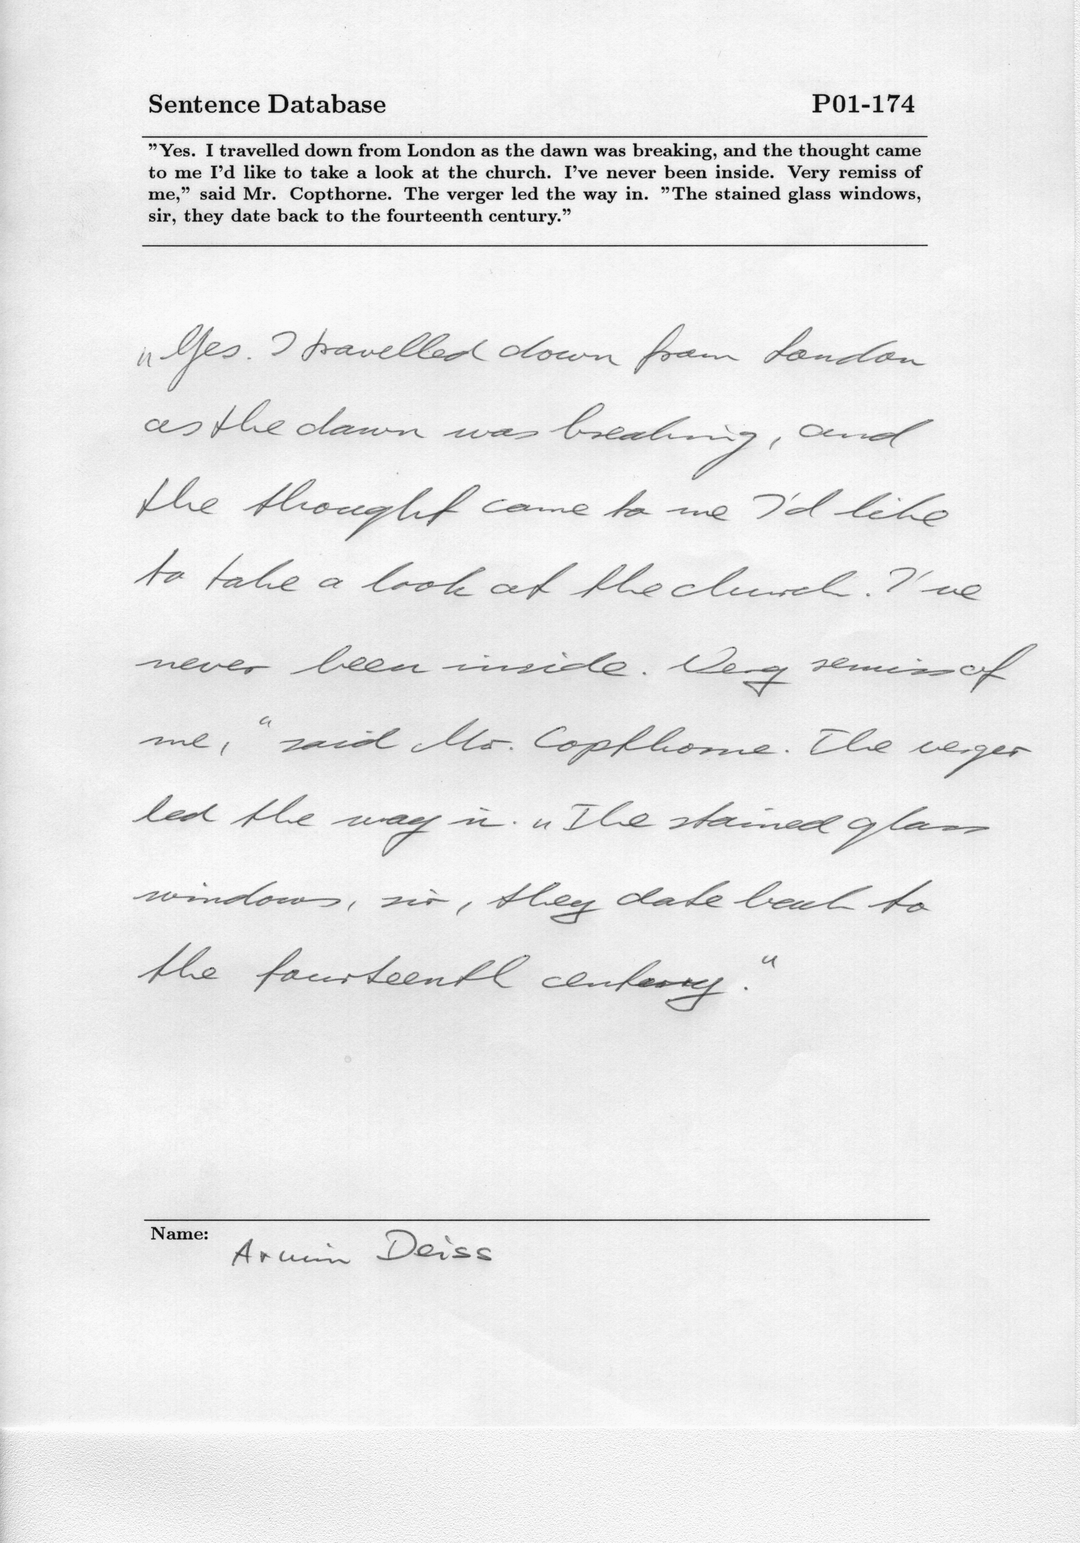 Sentence Database P01-174
"Yes. I travelled down from London as the dawn was breaking, and the thought came
to me I'd like to take a look at the church. I've never been inside. Very remiss of
me," said Mr. Copthorne. The verger led the way in. "The stained glass windows,
sir, they date back to the fourteenth century."
„Yes. I travelled down from London
as the dawn was breaking, and
the thought came to me I'd like
to take a look at the church. I've
never been inside. Very remiss of
me,“ said Mr. Copthorne. The verger
led the way in. „The stained glass
windows, sir, they date back to
the fourteenth century.“
Name: Armin Deiss